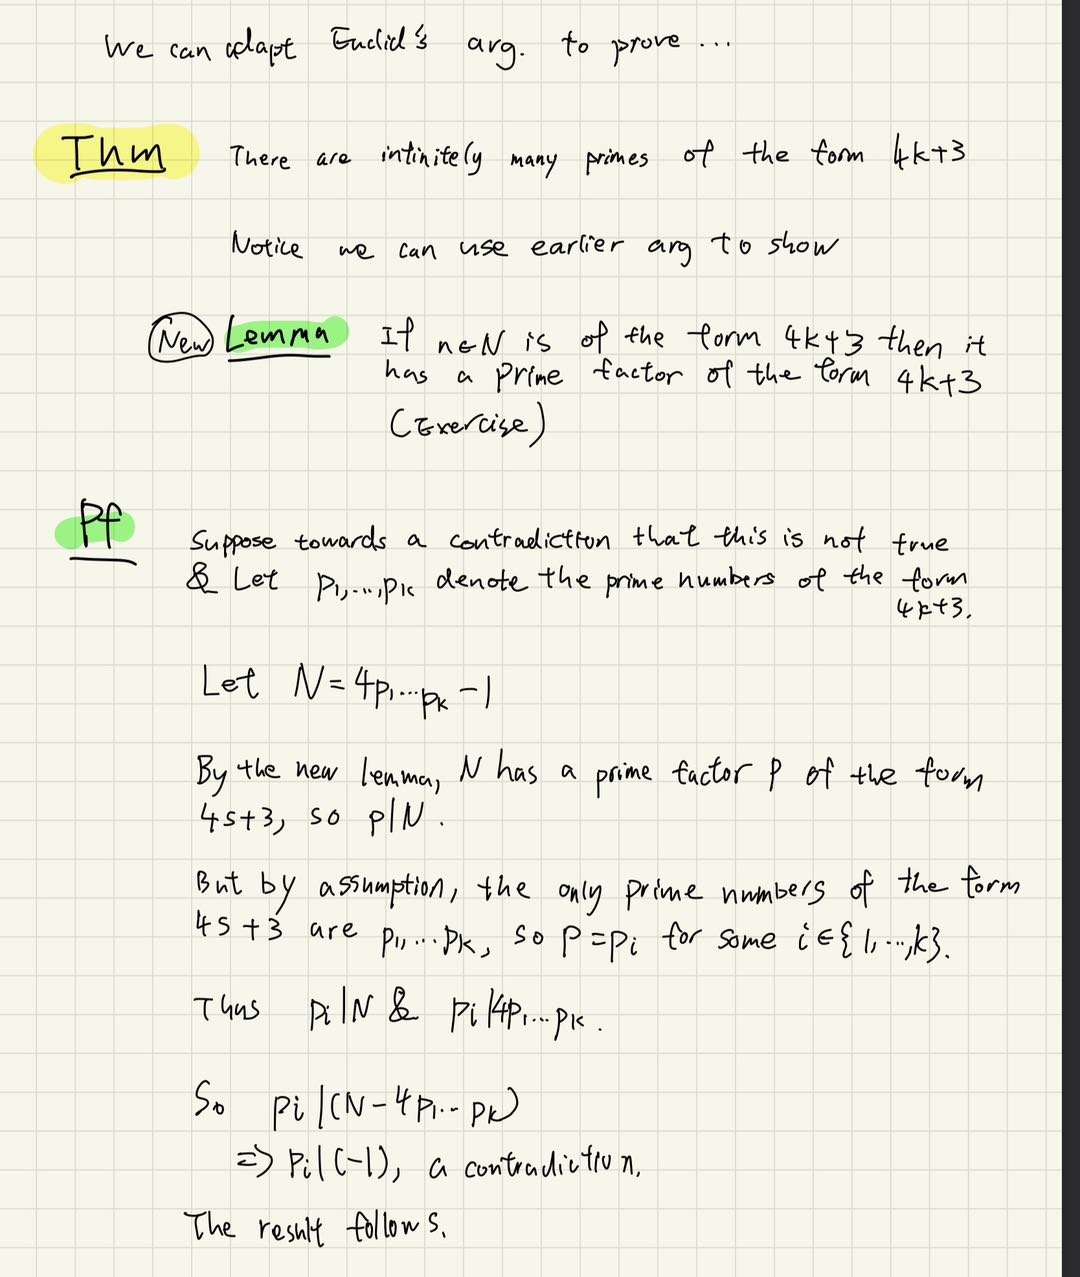 We can adapt Euclid's arg. to prove ...
Thm There are infinitely many primes of the form 4k+3
Notice we can use earlier arg to show
New Lemma If n∈N is of the form 4k+3 then it
has a prime factor of the form 4k+3
(Exercise)
Pf Suppose towards a contradiction that this is not true
& Let p1,...,pk denote the prime numbers of the form
4k+3.
Let N=4p1...pk -1
By the new lemma, N has a prime factor p of the form
4s+3, so p|N.
But by assumption, the only prime numbers of the form
4s+3 are p1,...pk, so p=pi for some i∈{1,...,k}.
Thus pi|N & pi|4p1...pk.
So pi|(N-4p1...pk)
=> pi|(-1), a contradiction.
The result follows.